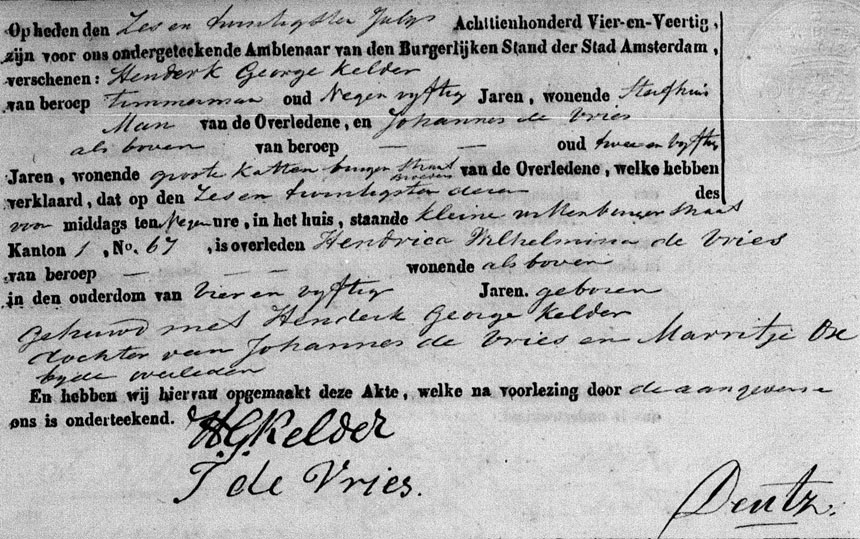 Op heden den Zes en twintigster July Achttienhonderd Vier-en-Veertig,
zijn voor ons ondergeteekende Ambtenaar van den Burgerlijken Stand der Stad Amsterdam,
verschenen: Henderk George Kelder
van beroep timmerman oud Negen vyftig Jaren, wonende Sterfhuis
Man van de Overledene, en Johannes de Vries
als boven van beroep — — oud twee en vyftig
Jaren, wonende groote Kattenburger Straat Broeder van de Overledene, welke hebben
verklaard, dat op den Zes en twintigster dezer des
voor middags ten Negen ure, in het huis, staande kleine wittenburger straat
Kanton 1, No. 67, is overleden Hendrica Wilhelmina de Vries
van beroep — — — wonende als boven
in den ouderdom van Vier en vyftig Jaren. geboren
Gehuwd met Henderk George Kelder
dochter van Johannes de Vries en Marritje
byde overleden
En hebben wij hiervan opgemaakt deze Akte, welke na voorlezing door de aangevers
ons is onderteekend.
H.G. Kelder
J de Vries.
Deutz.